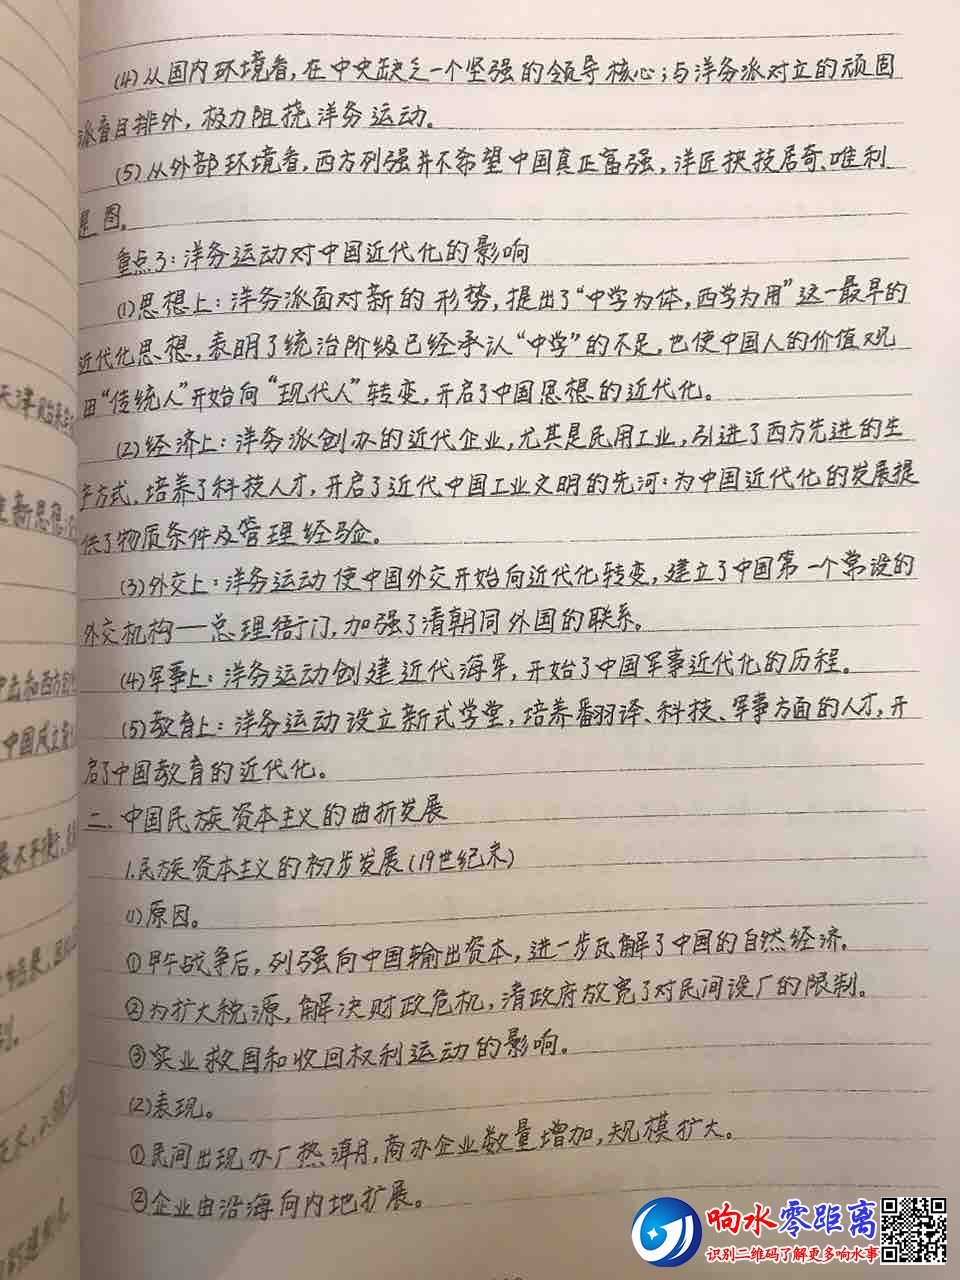 (4)从国内环境看,在中央缺乏一个坚强的领导核心;与洋务派对立的顽固
派盲目排外,极力阻挠洋务运动。
(5)从外部环境看,西方列强并不希望中国真正富强,洋匠挟技居奇、唯利
是图。
重点3:洋务运动对中国近代化的影响
(1)思想上:洋务派面对新的形势,提出了“中学为体,西学为用”这一最早的
近代化思想,表明了统治阶级已经承认“中学”的不足,也使中国人的价值观
由“传统人”开始向“现代人”转变,开启了中国思想的近代化。
(2)经济上:洋务派创办的近代企业,尤其是民用工业,引进了西方先进的生
产方式,培养了科技人才,开启了近代中国工业文明的先河;为中国近代化的发展提
供了物质条件及管理经验。
(3)外交上:洋务运动使中国外交开始向近代化转变,建立了中国第一个常设的
外交机构——总理衙门,加强了清朝同外国的联系。
(4)军事上:洋务运动创建近代海军,开始了中国军事近代化的历程。
(5)教育上:洋务运动设立新式学堂,培养翻译、科技、军事方面的人才,开
启了中国教育的近代化。
二、中国民族资本主义的曲折发展
1.民族资本主义的初步发展(19世纪末)
(1)原因。
①甲午战争后,列强向中国输出资本,进一步瓦解了中国的自然经济。
②为扩大税源,解决财政危机,清政府放宽了对民间设厂的限制。
③实业救国和收回权利运动的影响。
(2)表现。
①民间出现办厂热潮,商办企业数量增加,规模扩大。
②企业由沿海向内地扩展。
天津
新思想
和西方
中国成立
展不平衡
响水零距离
识别二维码了解更多响水事